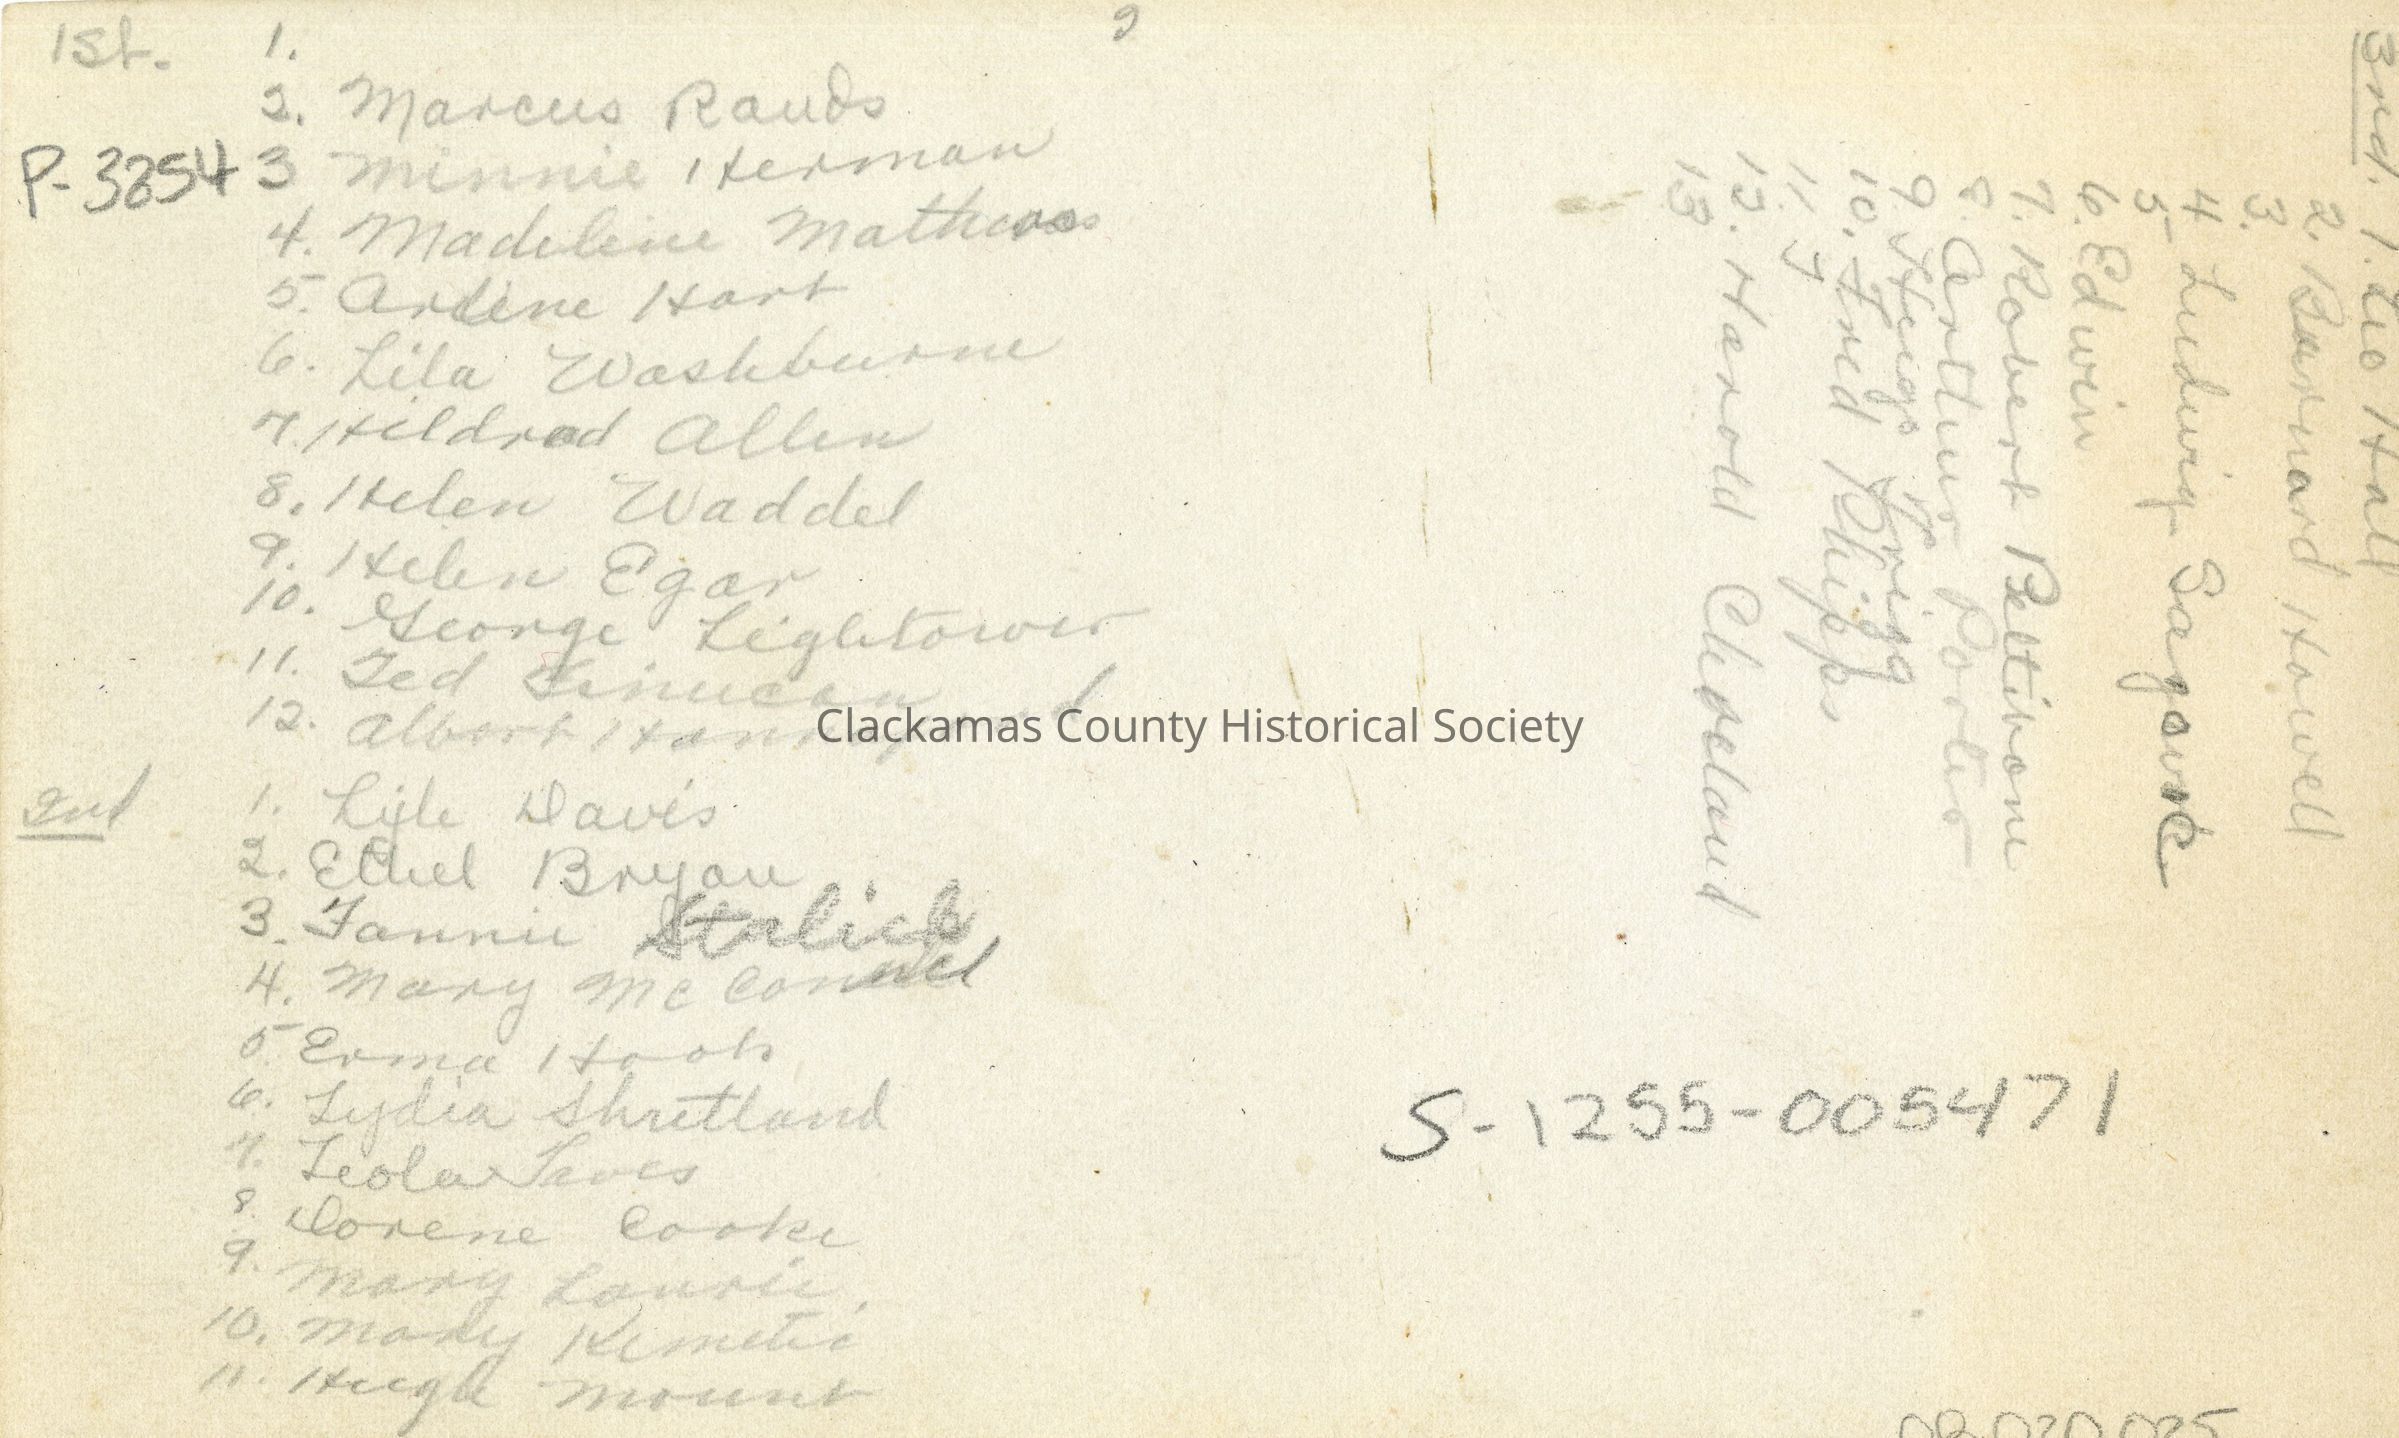 1st. 1.
2. Marcus Rauds
P-3254 3 Minnie Herman
4. Madeline Mathews
5. Ardene Hart
6. Lila Washburne
7. Hildred Allen
8. Helen Waddel
9. Helen Egar
10. George Lightower
11. Ted
12. Albert
Clackamas County Historical Society
2nd 1. Lyle Davis
2. Ethel Bryan
3. Fannie
4. Mary McConnel
5. Erma Hook
6. Lydia Shretland
7. Leola
8. Dorene Cooke
9. Mary Laurie
10. Mary
11. Hugh Mount
3rd. 1. Leo Hall
2. Barnard Howell
3.
4. Ludwig
5.
6. Edwin
7. Robert Peltibone
8. Arthur Porter
9.
10. Fred Phipps
11.
12. Harold Cleveland
13
S-1255-005471